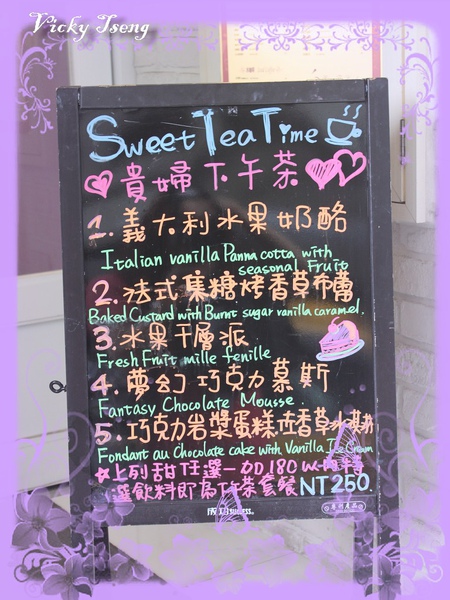 Vicky Tseng
Sweet Tea Time
貴婦下午茶
1. 義大利水果奶酪
Italian vanilla Panna cotta with
seasonal Fruit
2. 法式焦糖烤香草布蕾
Baked Custard with Burnt sugar vanilla caramel.
3. 水果千層派
Fresh Fruit mille fenille
4. 夢幻巧克力慕斯
Fantasy Chocolate Mousse
5. 巧克力岩漿蛋糕.佐香草冰淇淋
Fondant au Chocolate cake with Vanilla Ice Cream
上列甜任選一加180
選飲料即為下午茶套餐NT250.
成功 SUCCESS.